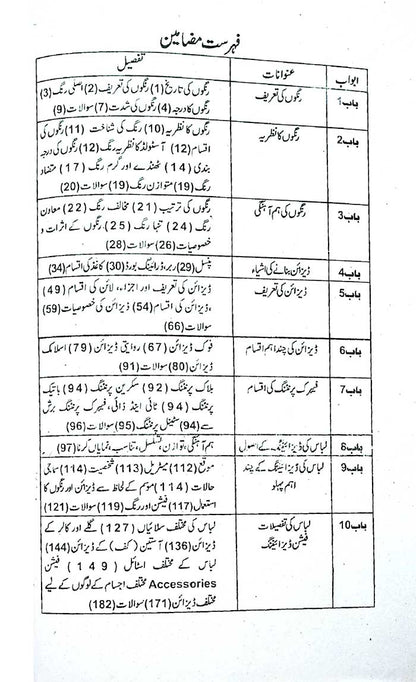 فہرست مضامین
ابواب عنوانات تفصیل
باب1 رنگوں کی تعریف رنگوں کی تاریخ (1) رنگوں کی تعریف (2) اصلی رنگ (3)
رنگوں کا درجہ (4) رنگوں کی شدت (7) سوالات (9)
باب2 رنگوں کا نظریہ رنگوں کا نظریہ (10) رنگ کی شناخت (11) رنگوں کی
اقسام (12) آسٹولڈ کا نظریہ رنگ (12) رنگوں کی درجہ
بندی (14) ٹھنڈے اور گرم رنگ (17) متضاد
رنگ (19) متوازن رنگ (19) سوالات (20)
باب3 رنگوں کی ہم آہنگی رنگوں کی ترتیب (21) مخالف رنگ (22) معاون
رنگ (24) تنہا رنگ (25) رنگوں کے اثرات و
خصوصیات (26) سوالات (28)
باب4 ڈیزائن بنانے کی اشیاء پنسل (29) ربر، ڈرائینگ بورڈ (30) کاغذ کی اقسام (34)
باب5 ڈیزائن کی تعریف ڈیزائن کی تعریف اور اجزاء، لائن کی اقسام (49)
، ڈیزائن کی اقسام (54) ڈیزائن کی خصوصیات (59)
سوالات (66)
باب6 ڈیزائن کی چند اہم اقسام فوک ڈیزائن (67) روایتی ڈیزائن (79) اسلامک
ڈیزائن (80) سوالات (91)
باب7 فیبرک پرنٹنگ کی اقسام بلاک پرنٹنگ (92) سکرین پرنٹنگ (94) باتیک
پرنٹنگ (94) ٹائی اینڈ ڈائی، فیبرک پرنٹنگ برش
سے (94) سٹینسل پرنٹنگ (95) سوالات (96)
باب8 لباس کی ڈیزائینگ کے اصول ہم آہنگی، توازن، تسلسل، تناسب، نمایاں کرنا (97)
باب9 لباس کی ڈیزائینگ کے چند موقع (112) میٹریل (113) شخصیت (114) سماجی
اہم پہلو حالات (114) موسم کے لحاظ سے ڈیزائن اور رنگوں کا
استعمال (117) فیشن اور رنگ (119) سوالات (121)
باب10 لباس کی تفصیلات لباس کی مختلف سلائیاں (127) گلے اور کالر کے
فیشن ڈیزائینگ ڈیزائن (136) آستین (کف) کے ڈیزائن (144)
لباس کے مختلف اسٹائل (149) فیشن
Accessories مختلف اجسام کے لوگوں کے لیے
مختلف ڈیزائن (171) سوالات (182)